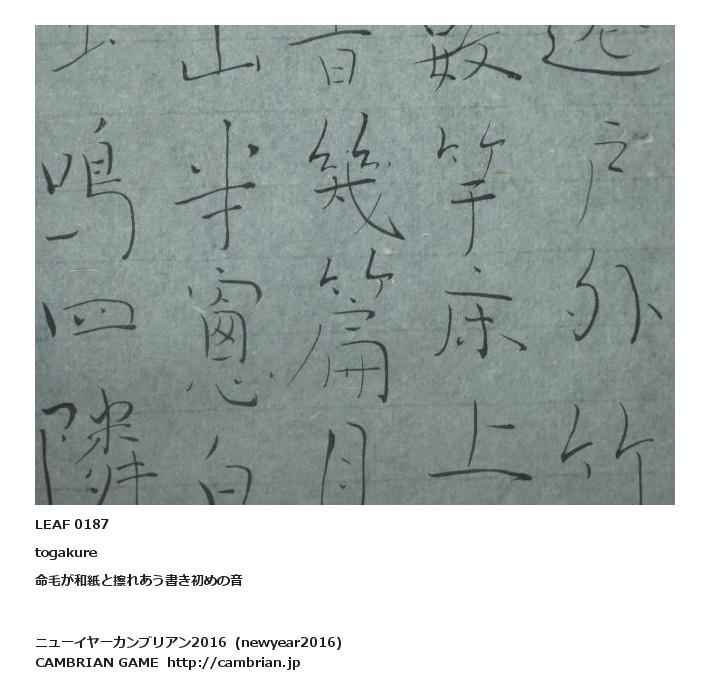 戸外竹
数竿床上
幾篇月
山半窻白
鳴四隣
LEAF 0187
togakure
命毛が和紙と擦れあう書き初めの音
ニューイヤーカンブリアン2016 (newyear2016)
CAMBRIAN GAME http://cambrian.jp